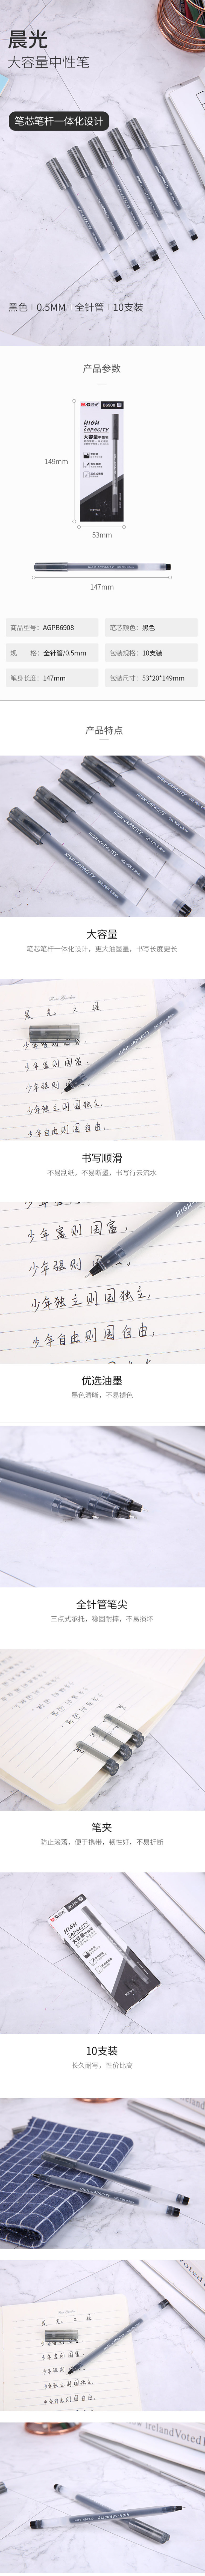 晨光
大容量中性笔
笔芯笔杆一体化设计
黑色 | 0.5MM | 全针管 | 10支装
产品参数
M&G 晨光 B6908
HIGH
CAPACITY
大容量中性笔
149mm
53mm
147mm
商品型号: AGPB6908
笔芯颜色: 黑色
规 格: 全针管/0.5mm
包装规格: 10支装
笔身长度: 147mm
包装尺寸: 53*20*149mm
产品特点
HIGH-CAPACITY
HIGH-CAPACITY
HIGH-CAPACITY
大容量
笔芯笔杆一体化设计，更大油墨量，书写长度更长
晨 光 文 具
HIGH-CAPACITY
少年富则国富，
少年强则国
少年独立则国独立，
少年自由则国自由，
书写顺滑
不易刮纸，不易断墨，书写行云流水
HIGH
少年富则国富，
少年强则国
少年独立则国独立，
少年自由则国自由，
优选油墨
墨色清晰，不易褪色
全针管笔尖
三点式承托，稳固耐摔，不易损坏
笔夹
防止滚落，便于携带，韧性好，不易折断
M&G 晨光
HIGH
CAPACITY
大容量中性笔
10支装
长久耐写，性价比高
HIGH-CAPACITY
晨 光 文 具
少年富则国富，
少年强则国
少年独立则国独立，
少年自由则国自由，
IrelandVoted
HIGH-CAPACITY